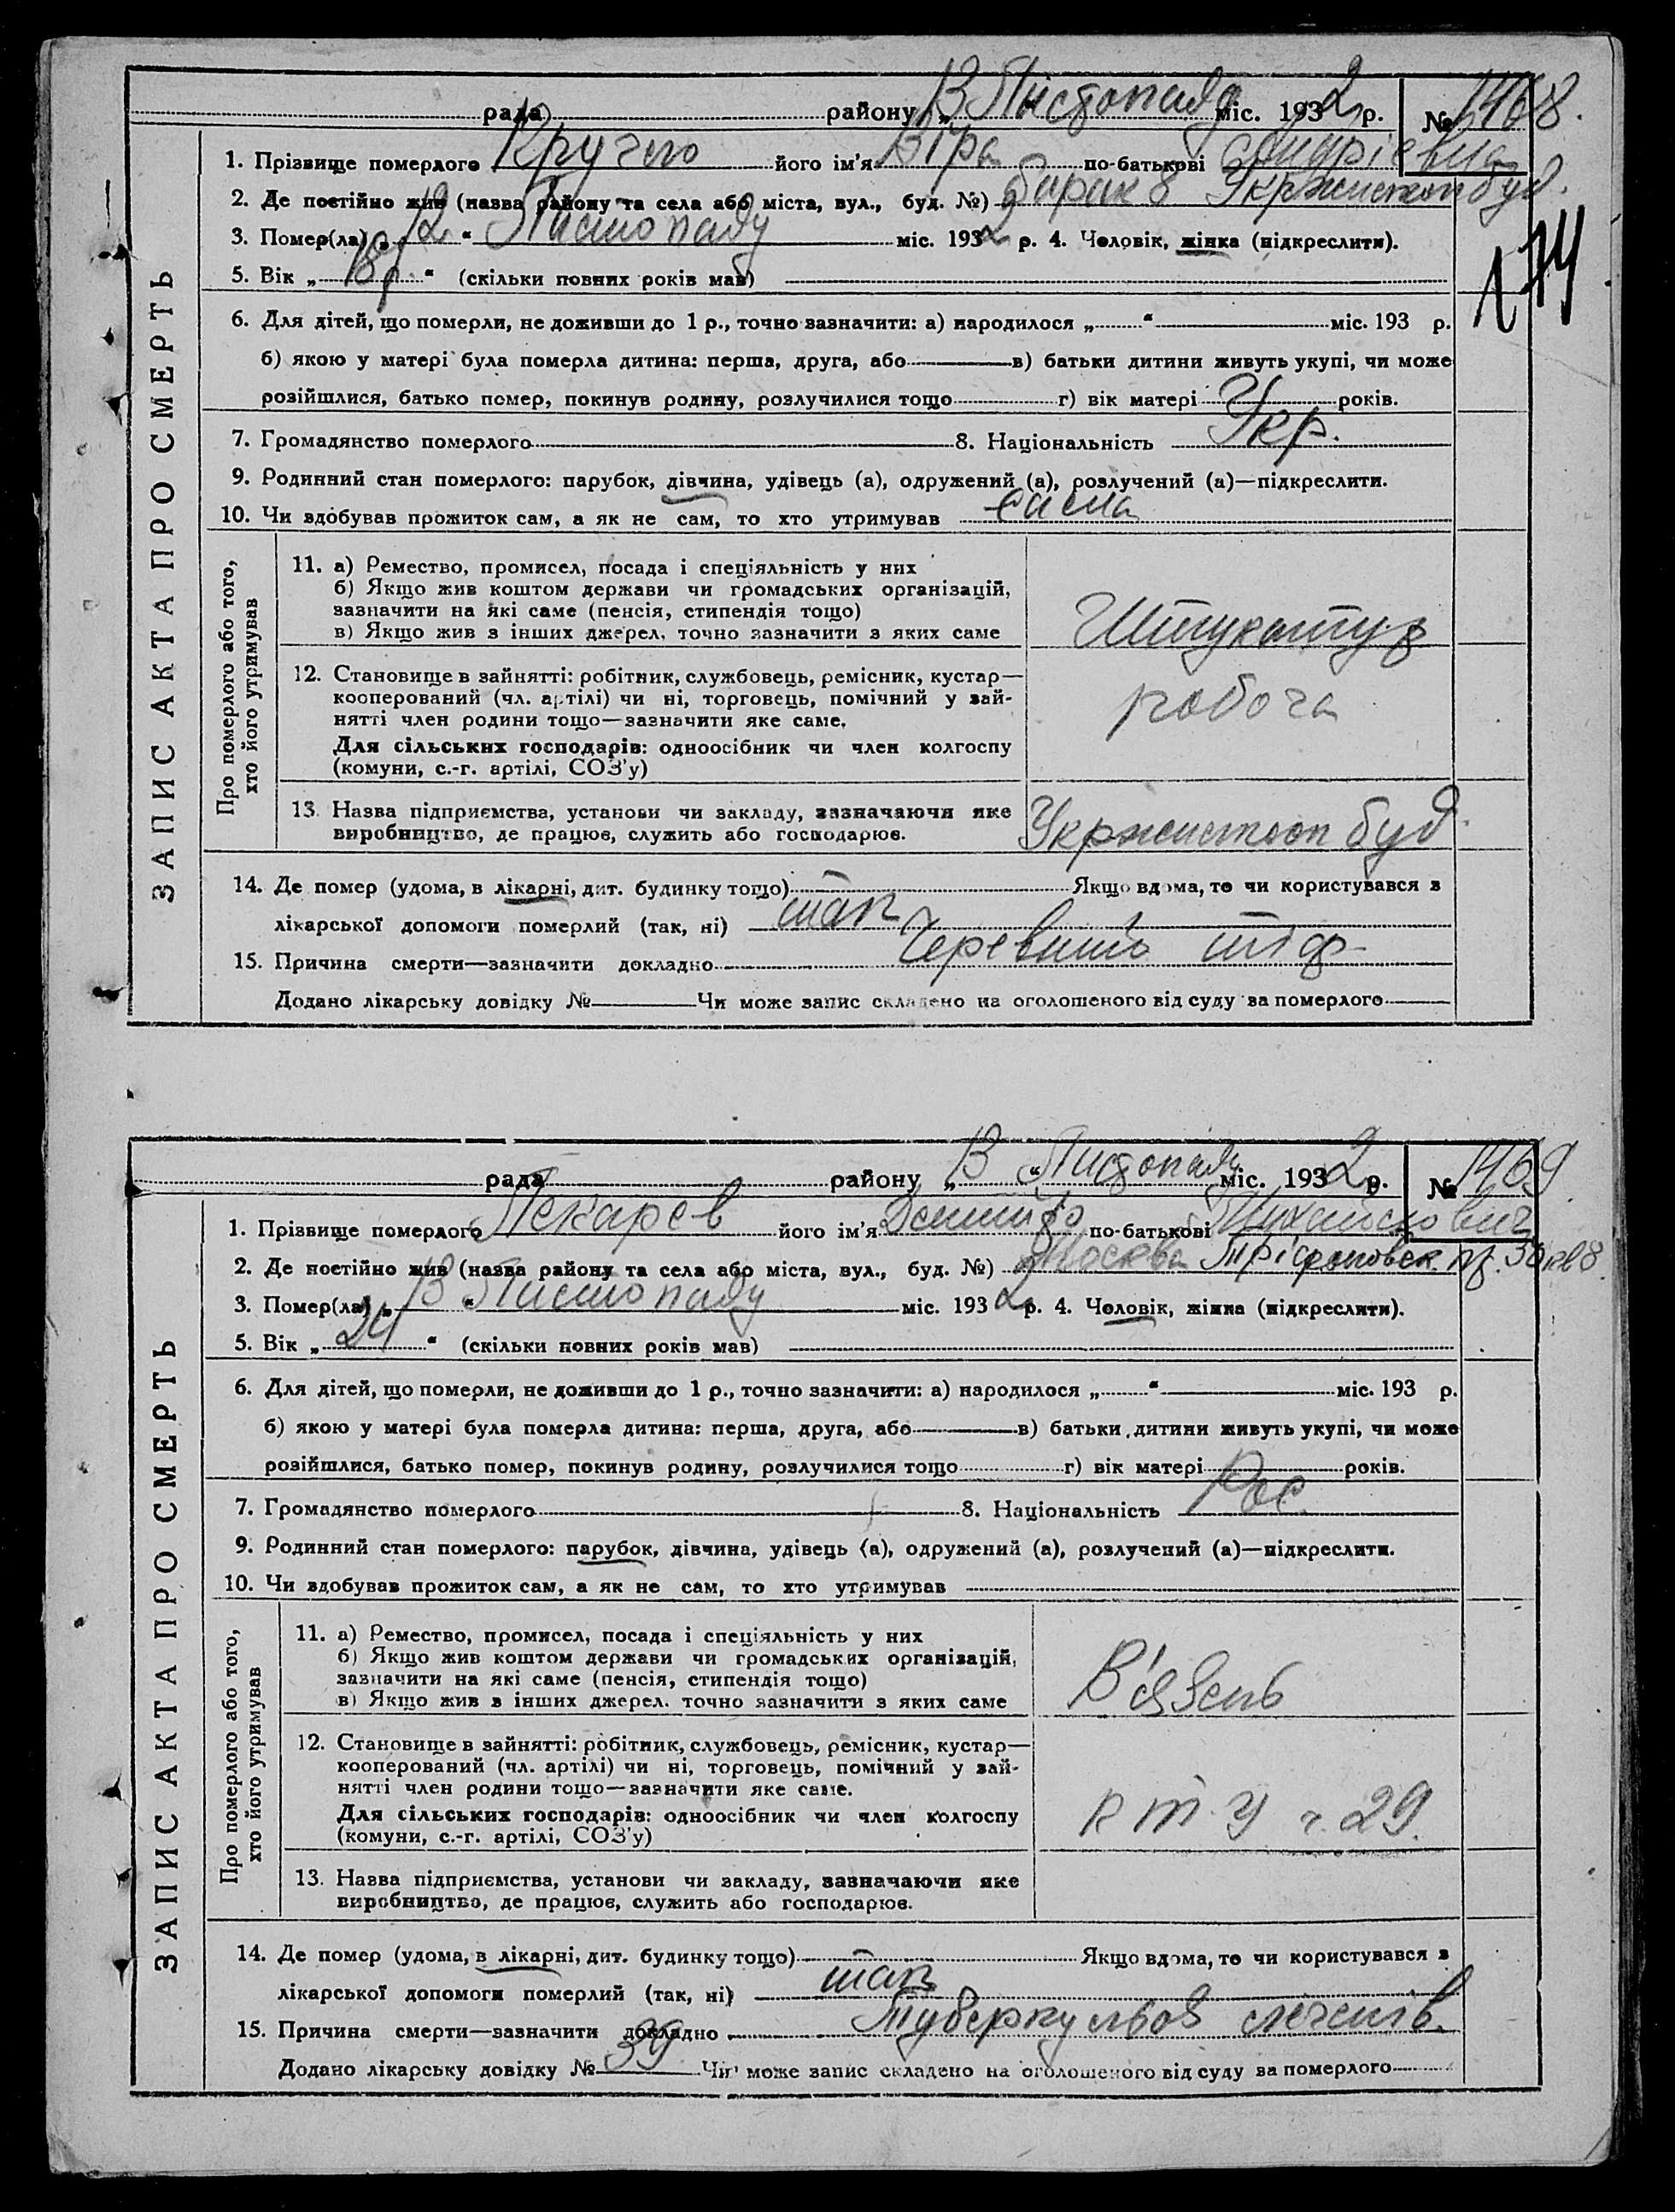 рада району „13 Листопада міс. 1932 р. № 1468.
1. Прізвище померлого його ім'я Віра по-батькові
2. Де постійно жив (назва району та села або міста, вул., буд. №) барак 8
3. Помер(ла) „12 “ Листопаду міс. 1932 р. 4. Чоловік, жінка (підкреслити).
174
5. Вік „ 18 р “ (скільки повних років мав)
6. Для дітей, що померли, не доживши до 1 р., точно зазначити: а) народилося „ “ міс. 193 р.
б) якою у матері була померла дитина: перша, друга, або в) батьки дитини живуть укупі, чи може
розійшлися, батько помер, покинув родину, розлучилися тощо г) вік матері років.
7. Громадянство померлого 8. Національність Укр.
9. Родинний стан померлого: парубок, дівчина, удівець (а), одружений (а), розлучений (а)—підкреслити.
10. Чи здобував прожиток сам, а як не сам, то хто утримував сама
ЗАПИС АКТА ПРО СМЕРТЬ
Про померлого або того,
хто його утримував
11. а) Ремество, промисел, посада і спеціяльність у них
б) Якщо жив коштом держави чи громадських організацій,
зазначити на які саме (пенсія, стипендія тощо)
в) Якщо жив з інших джерел, точно зазначити з яких саме
Штукатур
12. Становище в зайнятті: робітник, службовець, ремісник, кустар—
кооперований (чл. артілі) чи ні, торговець, помічний у зай-
нятті член родини тощо—зазначити яке саме.
Для сільських господарів: одноосібник чи член колгоспу
(комуни, с.-г. артілі, СОЗ'у)
робоча
13. Назва підприємства, установи чи закладу, зазначаючи яке
виробництво, де працює, служить або господарює.
14. Де помер (удома, в лікарні, дит. будинку тощо) Якщо вдома, то чи користувався з
лікарської допомоги померлий (так, ні) так
15. Причина смерти—зазначити докладно Черевний тіф
Додано лікарську довідку № Чи може запис складено на оголошеного від суду за померлого
рада району „13 “ Листопаду міс. 1932 р. № 1469
1. Прізвище померлого Пекарев його ім'я по-батькові
2. Де постійно жив (назва району та села або міста, вул., буд. №) Москва
3. Помер(ла) „13 “ Листопаду міс. 1932 р. 4. Чоловік, жінка (підкреслити).
5. Вік „ 24 “ (скільки повних років мав)
6. Для дітей, що померли, не доживши до 1 р., точно зазначити: а) народилося „ “ міс. 193 р.
б) якою у матері була померла дитина: перша, друга, або в) батьки дитини живуть укупі, чи може
розійшлися, батько помер, покинув родину, розлучилися тощо г) вік матері років.
7. Громадянство померлого 8. Національність Рос.
9. Родинний стан померлого: парубок, дівчина, удівець (а), одружений (а), розлучений (а)—підкреслити.
10. Чи здобував прожиток сам, а як не сам, то хто утримував
ЗАПИС АКТА ПРО СМЕРТЬ
Про померлого або того,
хто його утримував
11. а) Ремество, промисел, посада і спеціяльність у них
б) Якщо жив коштом держави чи громадських організацій,
зазначити на які саме (пенсія, стипендія тощо)
в) Якщо жив з інших джерел. точно зазначити з яких саме
В'язень
12. Становище в зайнятті: робітник, службовець, ремісник, кустар—
кооперований (чл. артілі) чи ні, торговець, помічний у зай-
нятті член родини тощо—зазначити яке саме.
Для сільських господарів: одноосібник чи член колгоспу
(комуни, с.-г. артілі, СОЗ'у)
к т у ч. 29.
13. Назва підприємства, установи чи закладу, зазначаючи яке
виробництво, де працює, служить або господарює.
14. Де помер (удома, в лікарні, дит. будинку тощо) Якщо вдома, то чи користувався з
лікарської допомоги померлий (так, ні) так
15. Причина смерти—зазначити докладно Туберкульоз легенів.
Додано лікарську довідку № 39 Чи може запис складено на оголошеного від суду за померлого